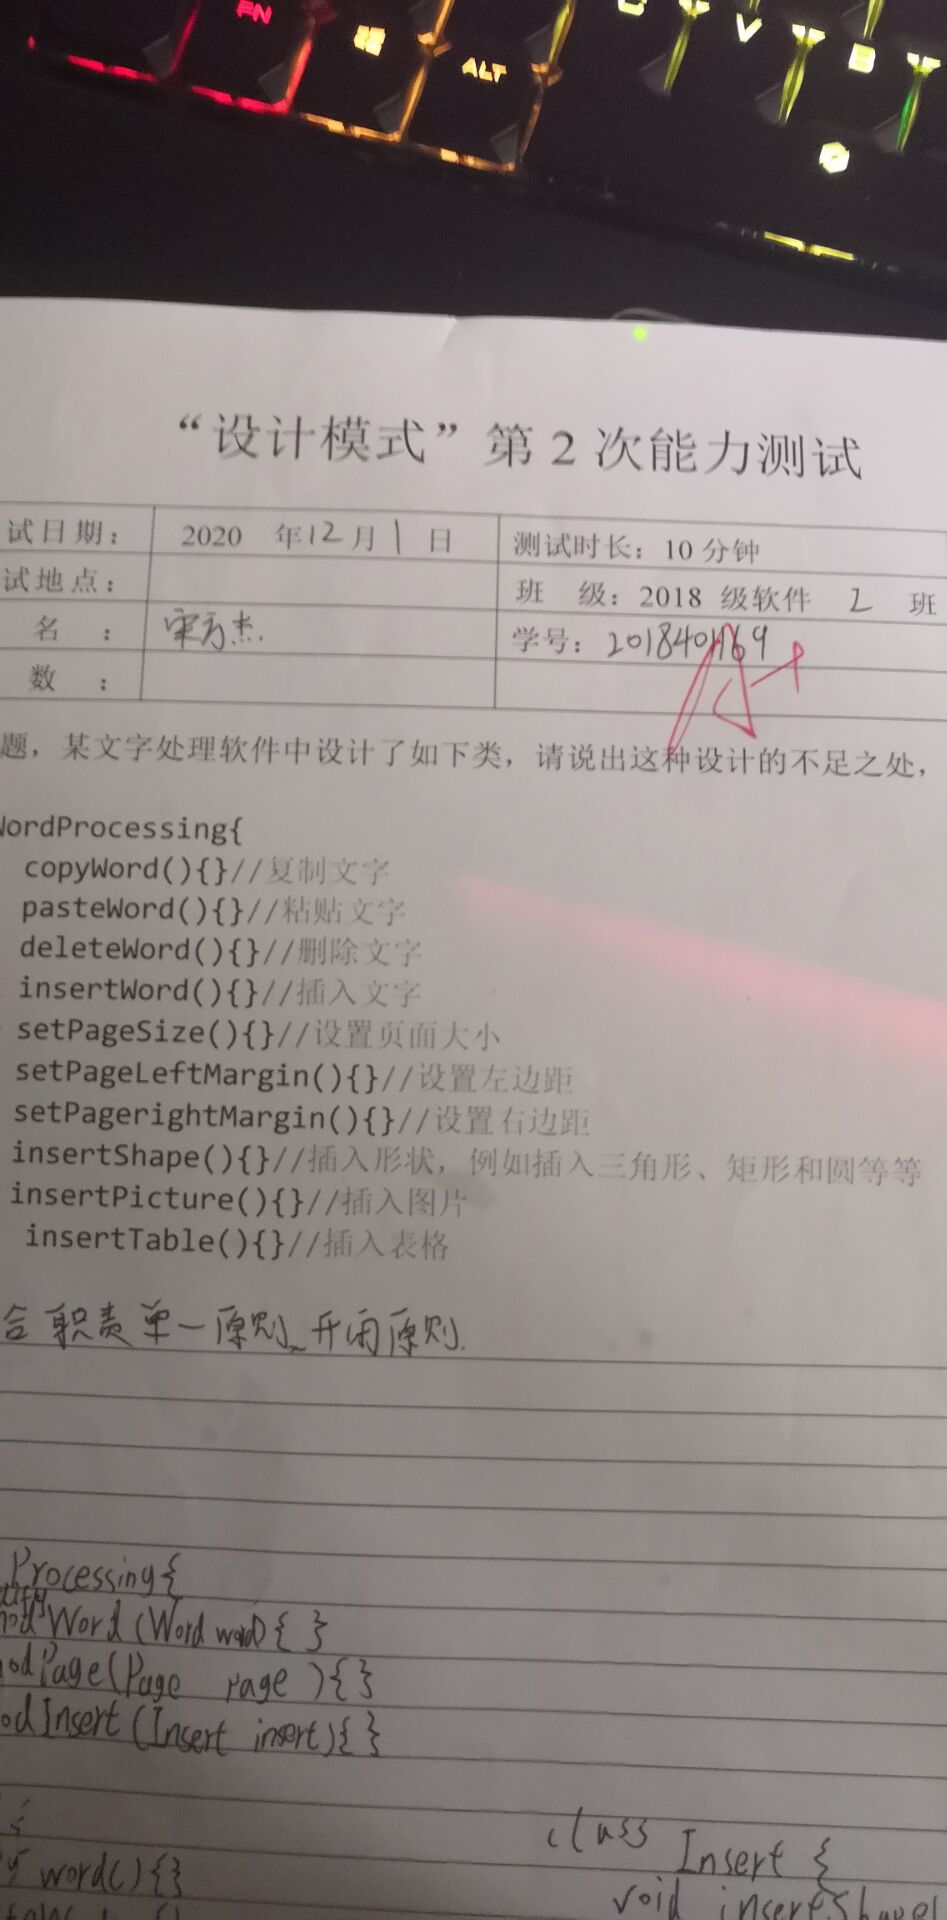 FN
ALT
C
V
B
“设计模式”第 2 次能力测试
试日期： 2020 年12月1日 测试时长：10 分钟
试地点： 班 级：2018 级软件 2 班
名 ： 学号：
数 ：
A+
题，某文字处理软件中设计了如下类，请说出这种设计的不足之处，
WordProcessing{
copyWord(){}//复制文字
pasteWord(){}//粘贴文字
deleteWord(){}//删除文字
insertWord(){}//插入文字
setPageSize(){}//设置页面大小
setPageLeftMargin(){}//设置左边距
setPagerightMargin(){}//设置右边距
insertShape(){}//插入形状，例如插入三角形、矩形和圆等等
insertPicture(){}//插入图片
insertTable(){}//插入表格
合职责单一原则、开闭原则.
Processing{
Word(Word word){ }
odPage(Page page){ }
odInsert(Insert insert){ }
{
class Insert {
y word(){}
void insertShape(